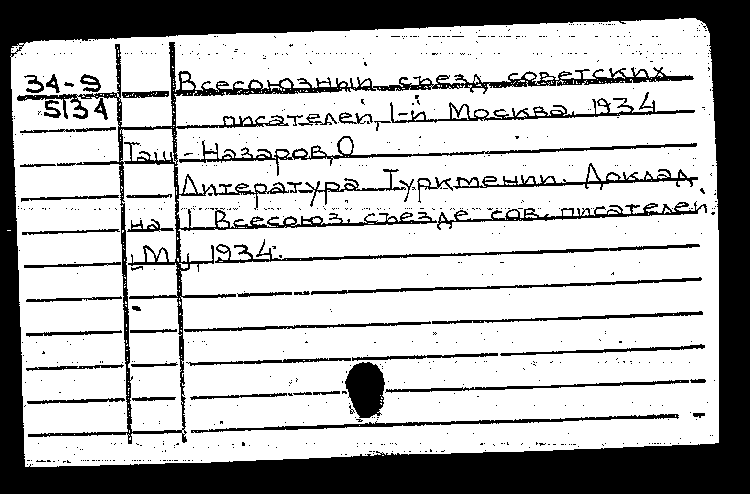 34-9 Всесоюзный съезд советских
5134 писателей, I-й. Москва. 1934
Таш-Назаров, О
Литература Туркмении. Доклад
на I Всесоюз. съезде сов. писателей.
[М], 1934.